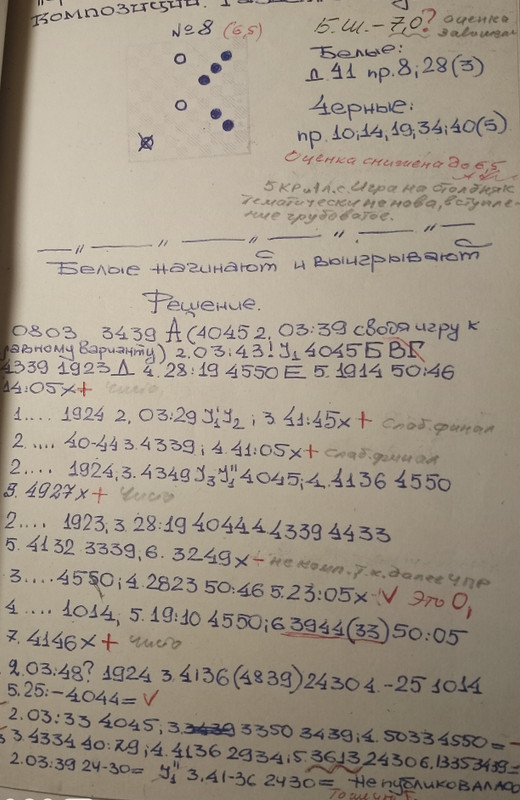 Композиции.
№8 (6,5)
Б.Ш. – 7,0? оценка
завышен
Белые:
Д. 41 пр. 8; 28 (3)
Черные:
пр. 10; 14, 19; 34; 40 (5)
Оценка снижена до 6,5
Игра на столбняк
тематически не нова, вступле-
ние грубоватое.
— " — " — " — " — " —
Белые начинают и выигрывают
Решение.
0803 3439 А (4045 2, 03:39 сводя игру к
равному варианту) 2.03:43! 4045 Б В Г
4339 1923 Д 4. 28:19 4550 Е 5. 1914 50:46
14:05х + чисто
1.... 1924 2, 03:29 ; 3 41:45х + слаб. финал
2 .... 40-44 3. 4339; 4. 41:05х + слаб. финал
2 .... 1924, 3. 4349 4045; 4. 4136 4550
5. 4927х + чисто
2.... 1923, 3 28:19 4044 4 4339 4433
5. 4132 3339, 6. 3249х – не комп. т.к. далее 4 пр
3.... 4550; 4. 2823 50:46 5. 23:05х – √ Это О,
4 .... 1014; 5. 19:10 4550; 6 3944 (33) 50:05
7. 4146х + чисто
2. 03:48? 1924 3. 4136 (4839) 2430 4. -25 1014
5. 25: – 4044 = √
2. 03:33 4045, 3. 3350 3439; 4. 5033 4550 =
3. 4334 40:29; 4. 4136 2934; 5. 3613 2430 6. 1335 3439 =
2. 03:39 24-30 = 3. 41-36 2430 = Не публиковалась